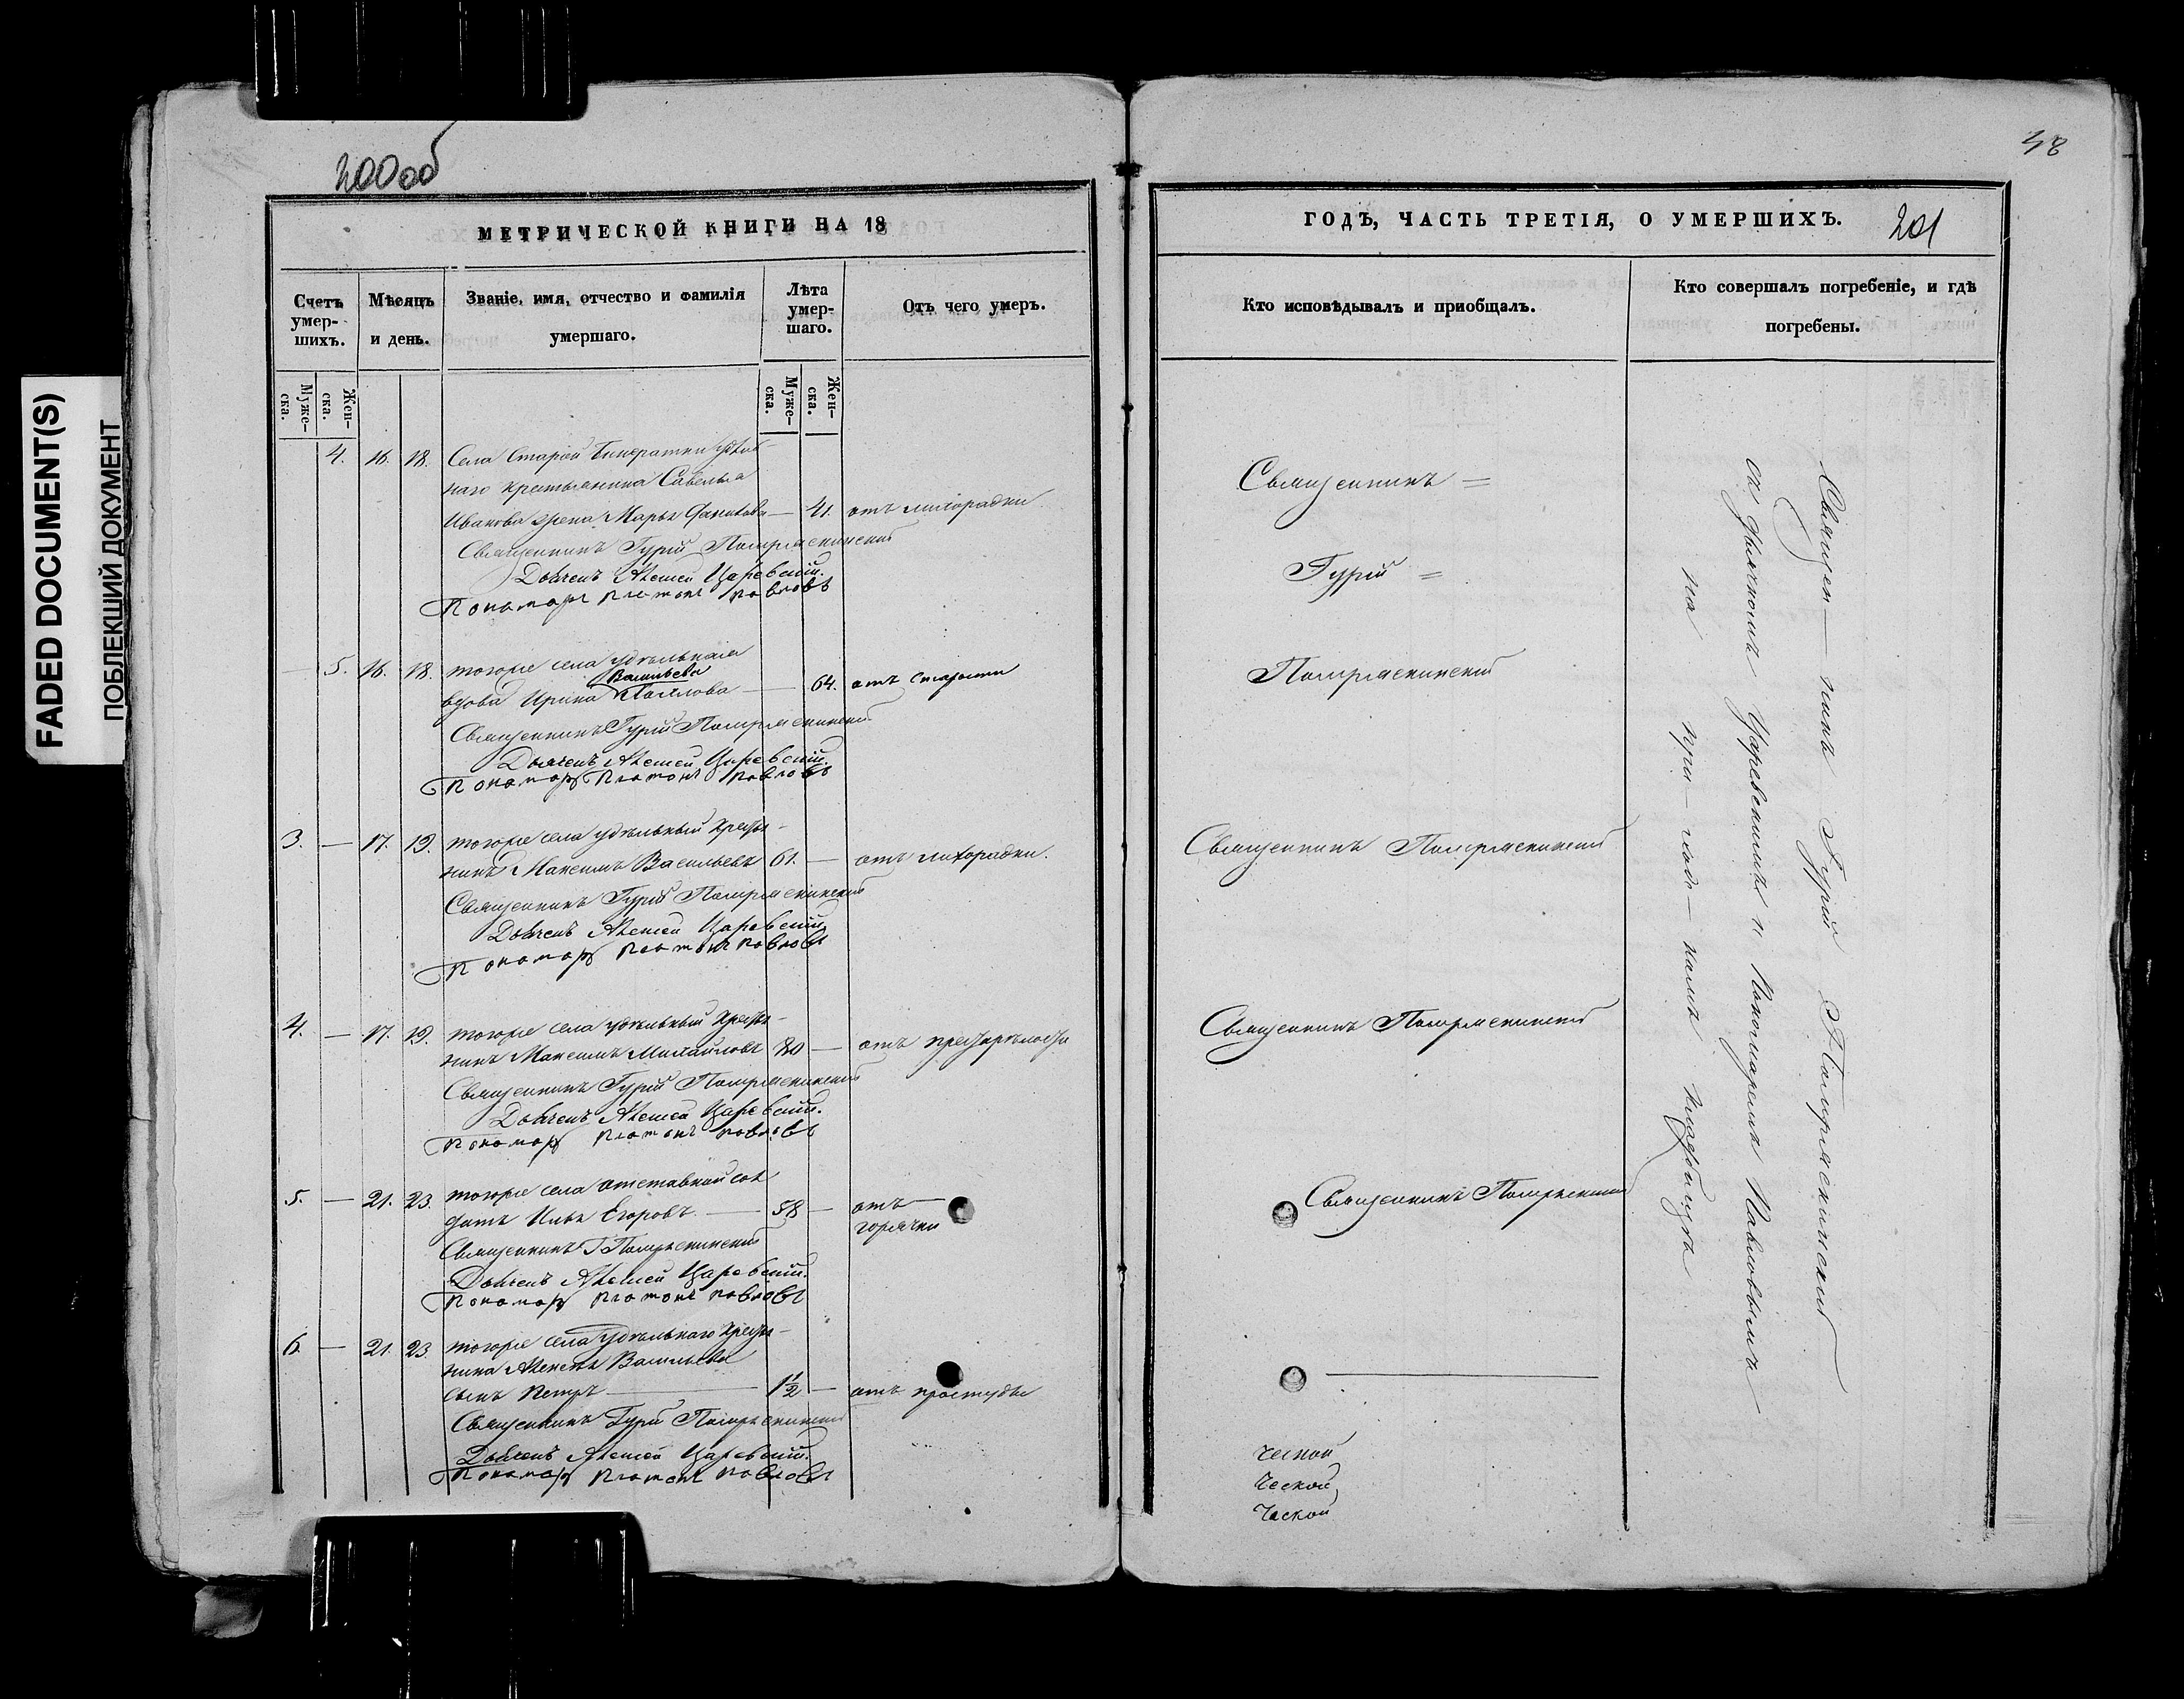 FADED DOCUMENT(S)
ПОБЛЕКШИЙ ДОКУМЕНТ
200об
МЕТРИЧЕСКОЙ КНИГИ НА 18
Счетъ умер-шихъ.
Мѣсяцъ и день.
Званіе, имя, отчество и фамилія умершаго.
Лѣта умер-шаго.
Отъ чего умеръ.
Муже-ска.
Жен-ска.
Муже-ска.
Жен-ска.
4. 16. 18. Села Старой удѣль-
наго крестьянина Савелья
Иванова жена Марья — 41. отъ лихорадки
Священникъ Гурій
Дьячекъ Алексей Царевскій.
Пономарь Платонъ Павловъ
— 5. 16. 18. тогоже села удѣльная
Васильева
вдова Ирина — 64. отъ старости
Священникъ Гурій
Дьячекъ Алексей Царевскій.
Пономарь Платонъ Павловъ
3. — 17. 19. тогоже села удѣльный кресть-
нинъ Максимъ Васильевъ 61. — отъ лихорадки.
Священникъ Гурій
Дьячекъ Алексей Царевскій
Пономарь Платонъ Павловъ
4. — 17. 19. тогоже села удѣльный кресть-
нинъ Максимъ Михайловъ 80 — отъ престарѣлости
Священникъ Гурій
Дьячекъ Алексей Царевскій.
Пономарь Платонъ Павловъ
5. — 21. 23. тогоже села отставной сол
датъ Илья Егоровъ — 58 — отъ
горячки
Священникъ Г
Дьячекъ Алексей Царевскій.
Пономарь Платонъ Павловъ
6. — 21. 23. тогоже села удѣльнаго кресть-
нина Васильева
сынъ Петръ — 1½ — отъ простуды
Священникъ Гурій
Дьячекъ Алексей Царевскій.
Пономарь Платонъ Павловъ
48
ГОДЪ, ЧАСТЬ ТРЕТІЯ, О УМЕРШИХЪ.
201
Кто исповѣдывалъ и приобщалъ.
Кто совершалъ погребеніе, и гдѣ погребены.
Священникъ =
Гурій =
Священникъ
Священникъ
Священникъ
ческой
ческой
ческой
Священ— никъ Гурій
съ дьячкомъ Царевскимъ и Пономаремъ Павловымъ
на при— ход— скомъ кладбищѣ